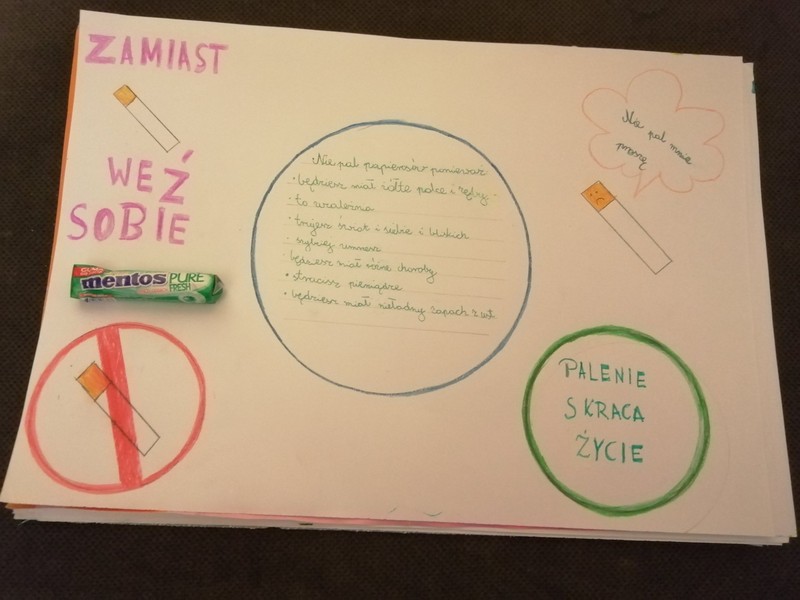 ZAMIAST
WEŹ
SOBIE
mentos PURE
FRESH
Nie pal papierosów ponieważ
• będziesz miał żółte palce i zęby
• to uzależnia
• trujesz świat i siebie i bliskich
• szybciej umrzesz
• będziesz miał różne choroby
• stracisz pieniądze
• będziesz miał nieładny zapach z ust
Nie pal mnie
proszę
PALENIE
SKRACA
ŻYCIE